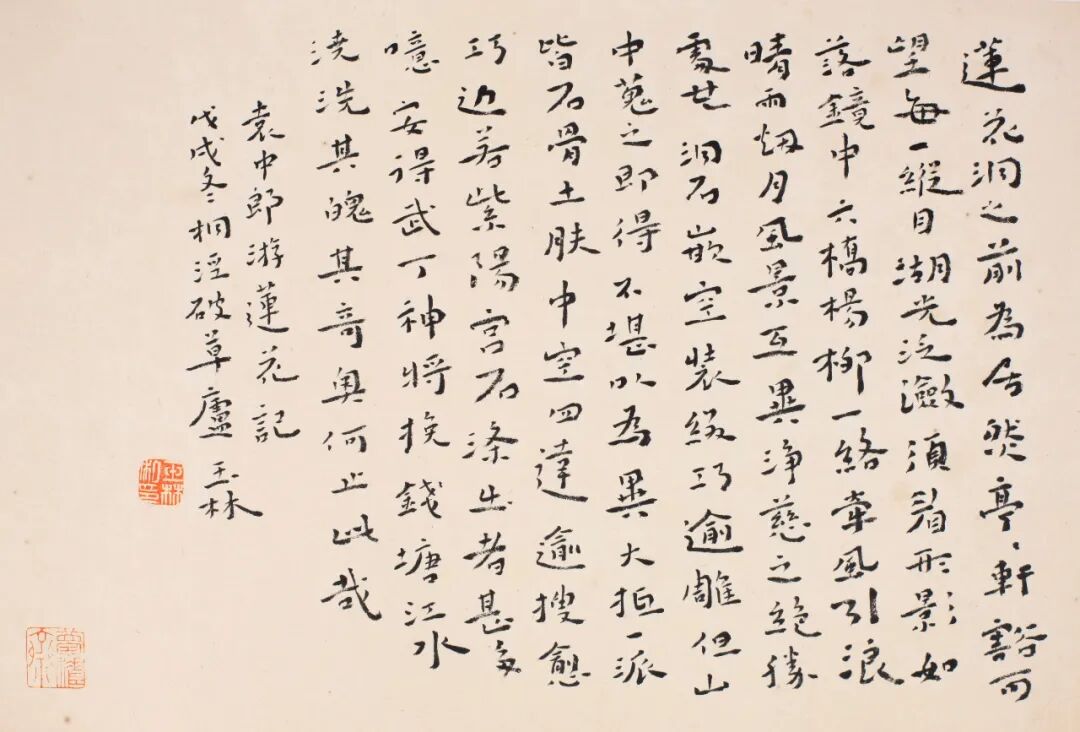 蓮花洞之前為居然亭〻軒豁可
望每一縱目湖光泛瀲須眉形影如
落鏡中六橋楊柳一絡牽風引浪
晴雨烟月風景互異淨慈之絕勝
處也洞石嵌空裝綴巧逾雕但山
中蒐之即得不堪以為異大抵一派
皆石骨土肤中空四達逾搜愈
巧近若紫陽宮石滌出者甚多
噫安得武丁神將挽錢塘江水
澆洗其魄其奇奧何止此哉
袁中郎游蓮花記
戊戌冬桐涇破草廬 玉林